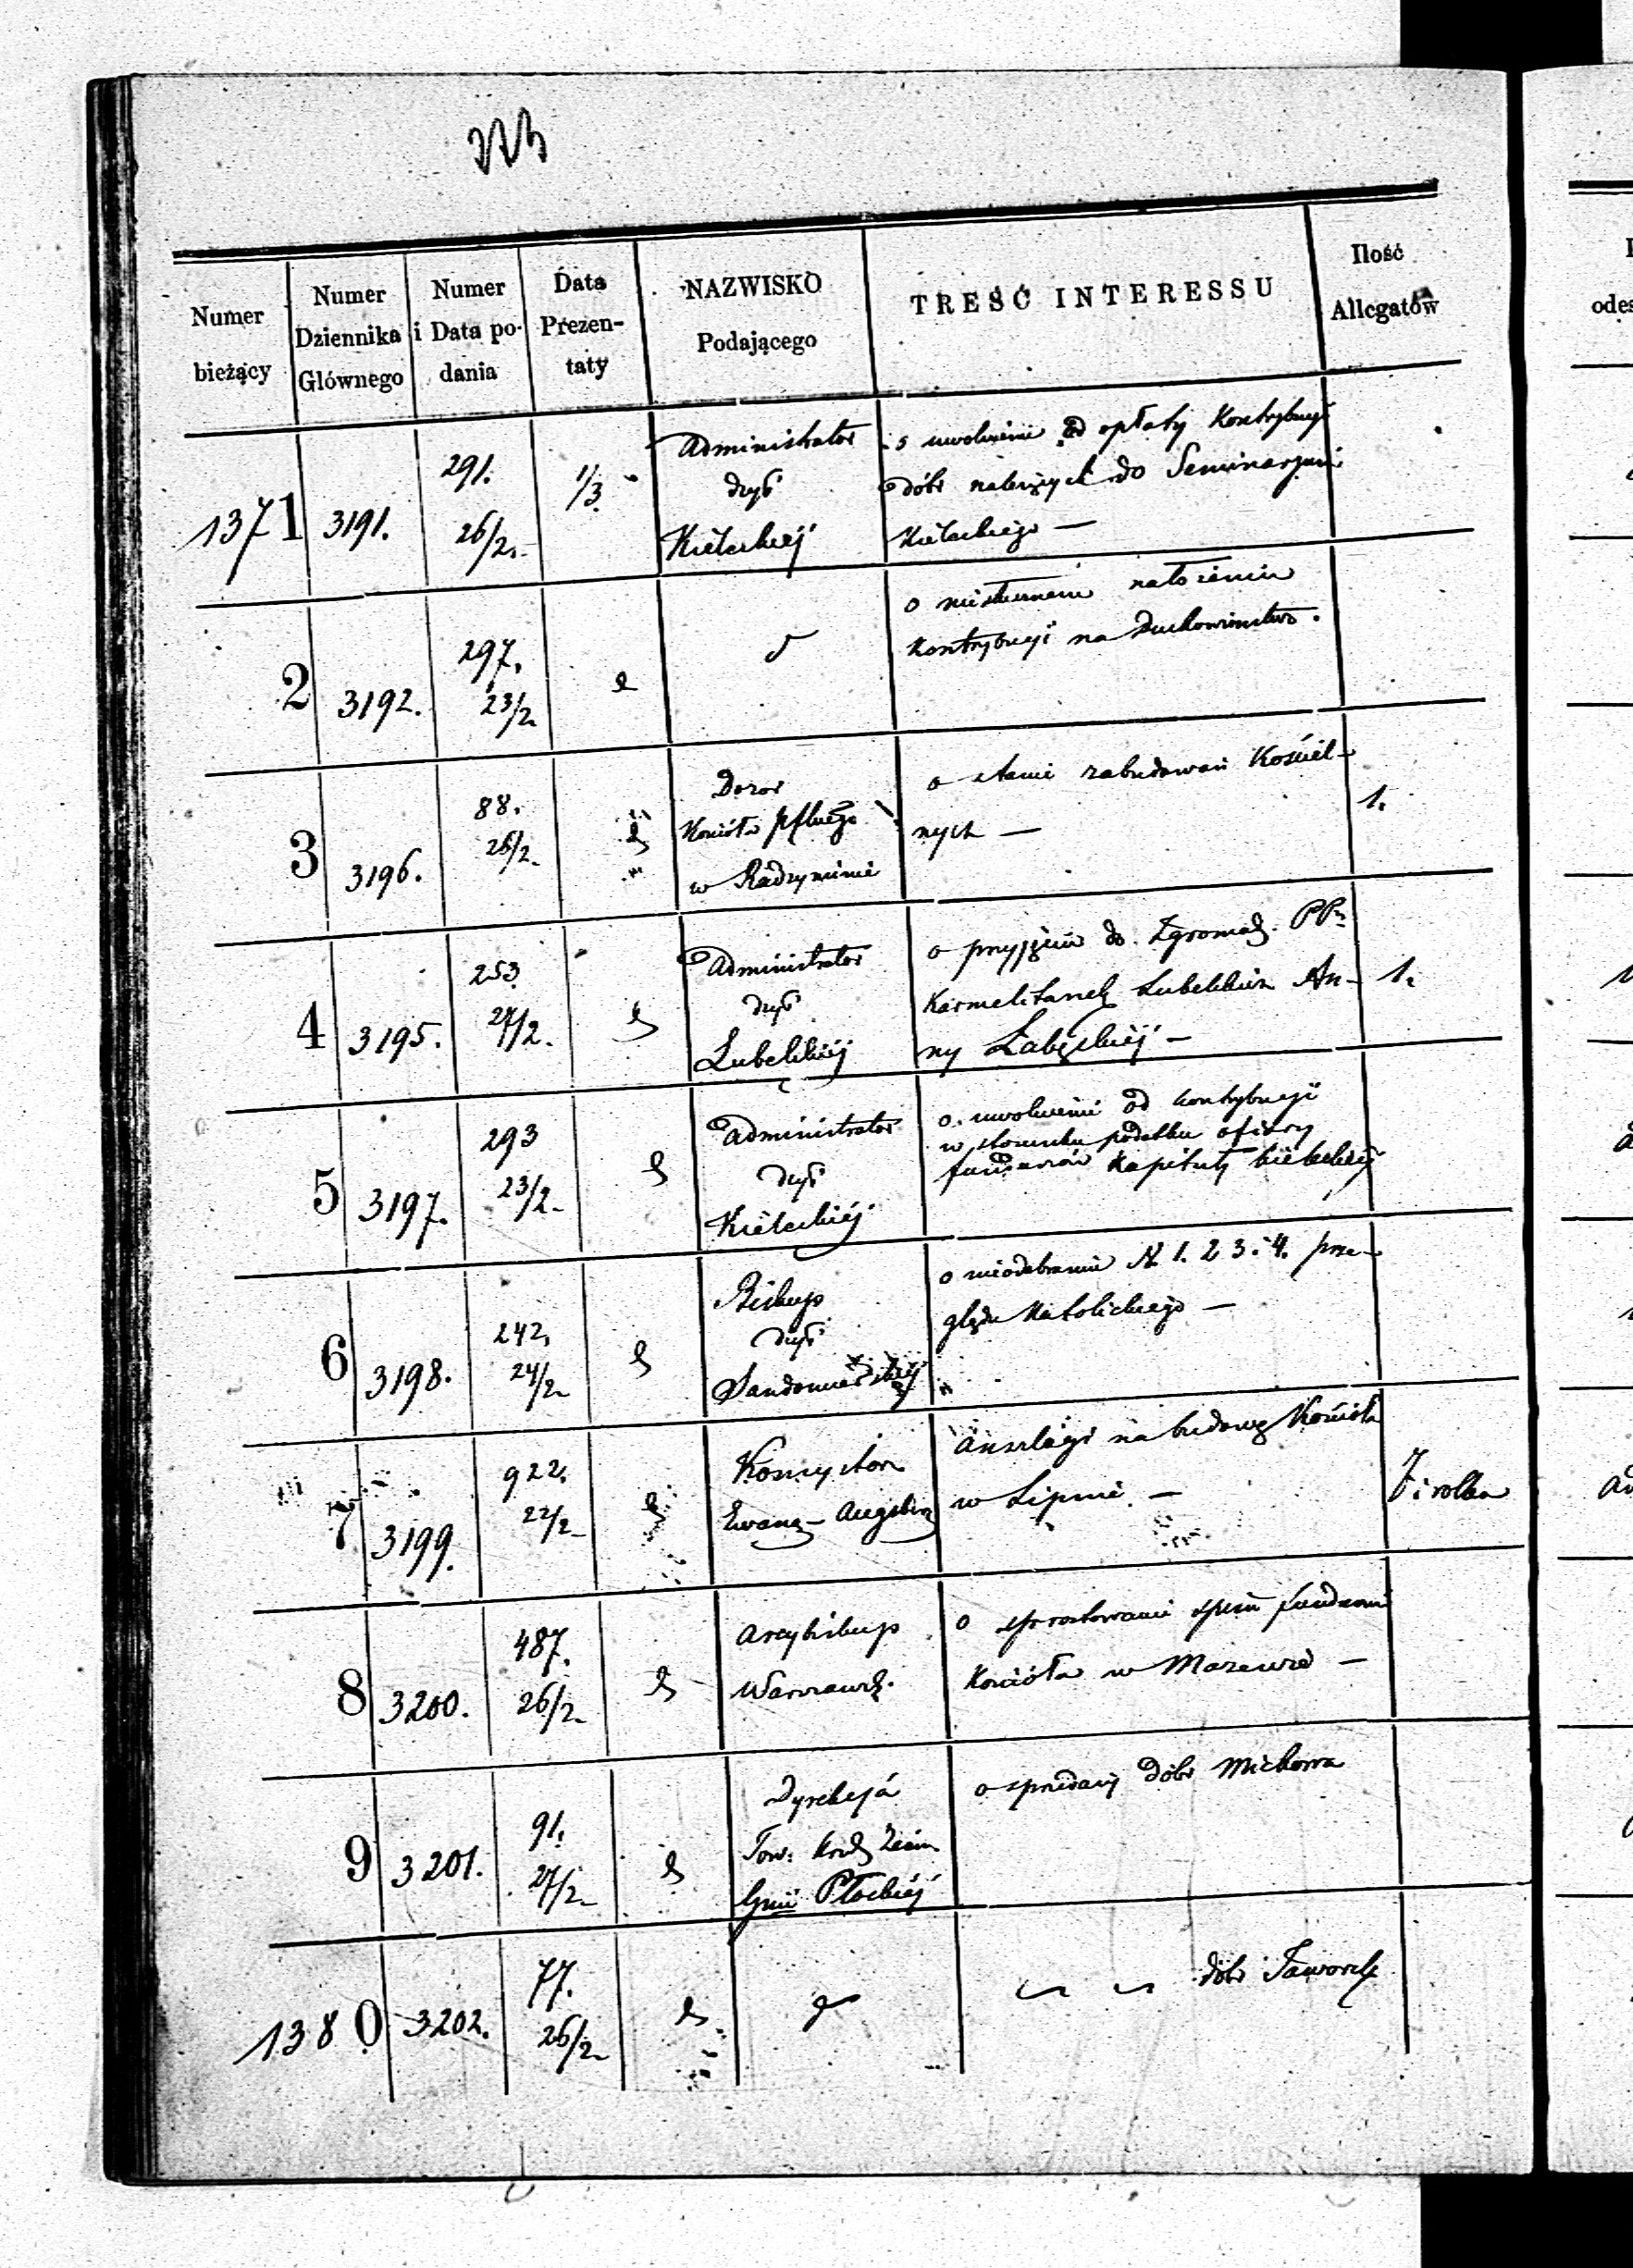 Numer bieżący
Numer Dziennika Głównego
Numer i Data podania
Data Prezentaty
NAZWISKO Podającego
TREŚĆ INTERESSU
Ilość Allegatów
1371 3191. 291. 26/2. 1/3.
Administrator
dyᵉ
Kieleckiéj
o uwolnienie od opłaty Kontrybucyi
dóbr należących do Seminaryum
Kieleckiego —
2 3192. 297. 23/2
o niesłusznem nałożeniu
Kontrybucyi na Duchowieństwo.
3 3196. 88. 26/2
Dozór
Kościoła
w Radzyminie
o stanie zabudowań Kościel-
nych —
1.
4 3195. 253. 27/2.
Administrator
dyᵉ
Lubelskiéj
o przyjęciu do Zgromadz. PPn
Karmelitanek Lubelskich An-
ny Zabęskiéj —
1.
5 3197. 293 23/2
Administrator
dyᵉ
Kieleckiéj
o uwolnienie od kontrybucyi
w stosunku podatku ofiary
funduszów Kapituły Kieleckiéj
6 3198. 242. 24/2
Biskup
dyᵉ
Sandomierskiéj
o nieodebraniu N 1. 2 3. i 4. prze-
glądu Katolickiego —
7 3199. 922. 22/2
Konsystorz
Ewang- Augsburg
Anszlagi na budowę Kościoła
w Lipnie. —
7 i rolka
8 3200. 487. 26/2
Arcybiskup
Warszawsk.
o sprostowanie spisu funduszu
Kościoła w Mazewie —
9 3201. 91. 27/2
Dyrekcja
Tow. Kred Ziem
Gunii Płockiéj
o sprzedaży dóbr Michowa
1380 3202. 77. 26/2
dóbr Jaworek